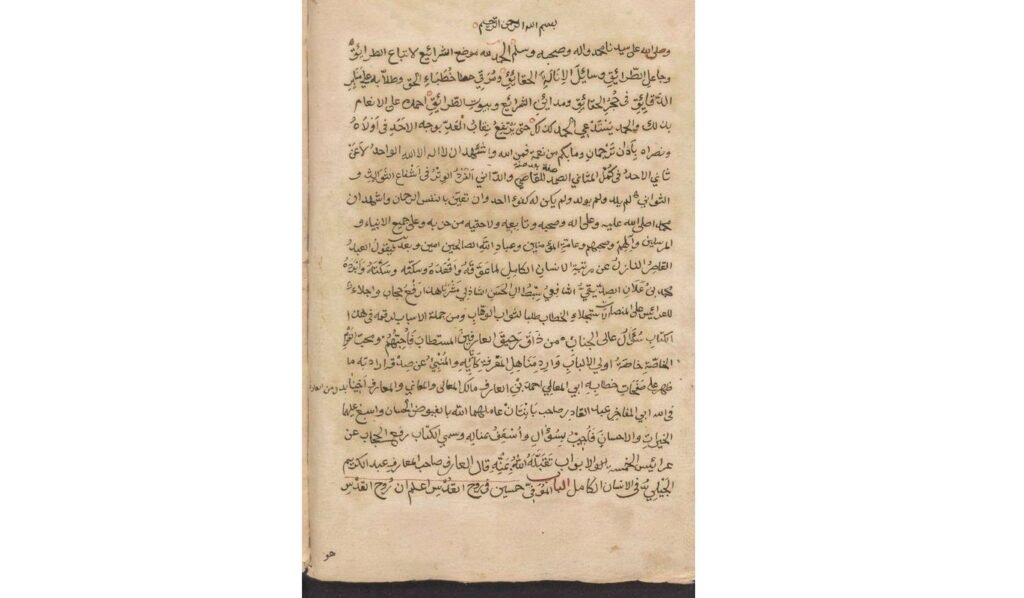 بسم الله الرحمن الرحيم
وصلى الله على سيدنا محمد واله وصحبه وسلم الحمد لله موضع الشرائع لاتباع الطرائق
وجاعل الطرائق وسائل الانالة الحقايق ومرقي خطباء الحق وطلابه على منابر
الدقايق في الحقايق ومدائن الشرائع وبيوت الطرائق احمده على الانعام
بذلك والحمد يستدعي الحمد كذلك حتى يرتفع نقاب العد بوجه الاحد في اولاه
ونصراه باذن ترجمان وما بكم من نعمة فمن الله واشهد ان لا اله الا الله الواحد لا عن
ثاني الاحد في كل المثاني الصمد للقاصي والداني الفرد الوتر في اشفاع الثوالث و
الثواني لم يلد ولم يولد ولم يكن له كفوا احد وان تعين بالنفس الرحمان واشهد ان
محمدا صلى الله عليه وعلى اله وصحبه وتابعيه ولاحقيه من حزبه وعلى جميع الانبياء و
المرسلين وآلهم وصحبهم وعامة المؤمنين وعباد الله الصالحين امين وبعد فيقول العبد
القاصر النازل عن مرتبة الانسان الكامل لما عقه وافقده وسكنه وسكته وابده
محمد بن علان الصديقي الشافعي سبط ال الحسن الشاذلي مشربا هذا رفع حجاب واجلاء
للعرائس على المنصات استجلاء والخطاب طلبا لثواب الوهاب ومن جملة الاسباب لرقمه في هذا
الكتاب سؤال عالي الجناب من ذاق رحيق العارفين المستطاب فاجبتهم ومحب
الخاصة خاصة اولي الالباب وارد مناهل المعرفة والمنبئ عن صدق ارادته ما
ظهر على صفحات خطابه ابي المعالي احمد بن العارف مالك المعالي والمعاني والمعارف
في الله ابي المفاخر عبد القادر صاحب باننتان عاملهما الله بالفيوض الحسان واسبغ عليهما
الخيرات والاحسان فاجبت سؤاله واسعف بمناله وسمي الكتاب رفع الحجاب عن
عرائس الخمسين الابواب تقبله الله بمنه قال العارف صاحب المعارف عبد الكريم
الجيلي في الانسان الكامل الباب الموفي خمسين في روح القدس اعلم ان روح القدس
هو